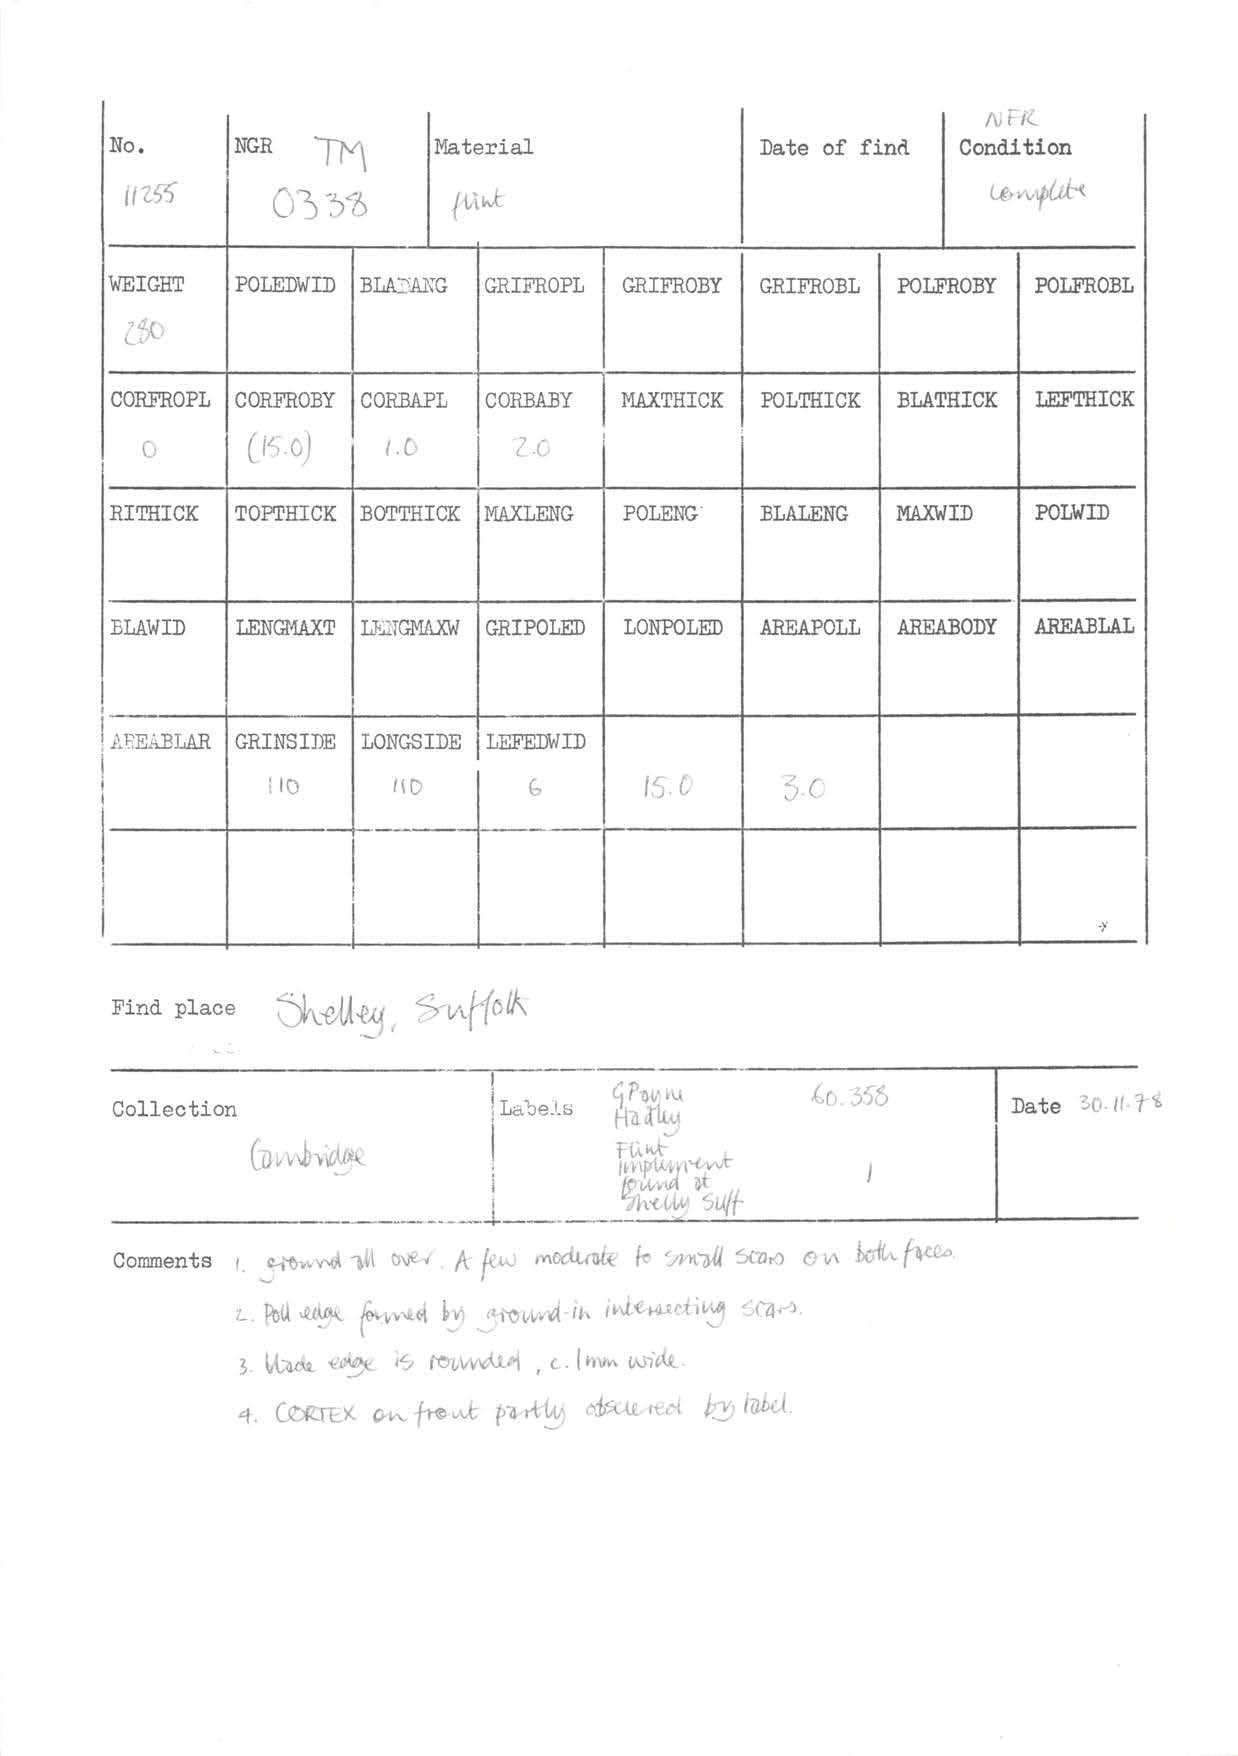 NFR
No. NGR TM Material Date of find Condition
11255 0338 flint complete
WEIGHT POLEDWID BLADANG GRIFROPL GRIFROBY GRIFROBL POLFROBY POLFROBL
280
CORFROPL CORFROBY CORBAPL CORBABY MAXTHICK POLTHICK BLATHICK LEFTHICK
0 (15.0) 1.0 2.0
RITHICK TOPTHICK BOTTHICK MAXLENG POLENG BLALENG MAXWID POLWID
BLAWID LENGMAXT LENGMAXW GRIPOLED LONPOLED AREAPOLL AREABODY AREABLAL
AREABLAR GRINSIDE LONGSIDE LEFEDWID
110 110 6 15.0 3.0
Find place Shelley, Suffolk
Collection Cambridge
Labels GPayne 60.358
Hadley
Flint
implement 1
found at
Shelly Suff
Date 30.11.78
Comments 1. ground all over. A few moderate to small scars on both faces.
2. Poll edge formed by ground-in intersecting scars.
3. blade edge is rounded, c. 1mm wide.
4. CORTEX on front partly obscured by label.